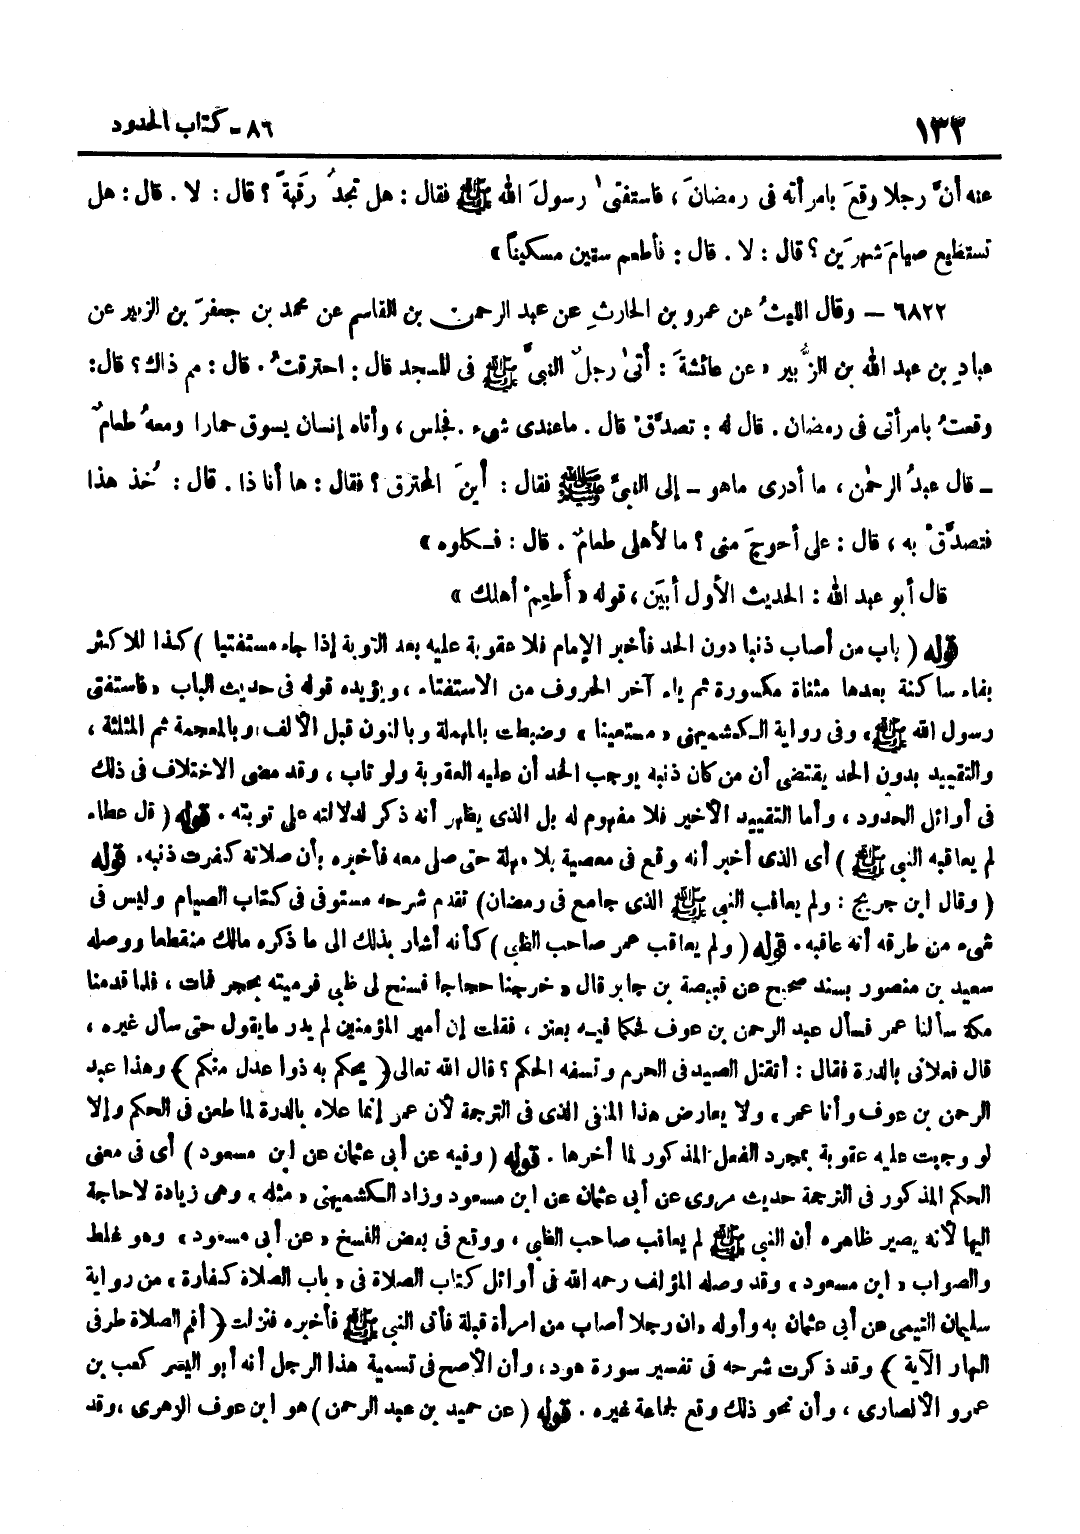 ١٣٣
٨٦ - كتاب الحدود
عنه أنَّ رجلا وقعَ بامرأته فى رمضانَ ، فاستفتىٰ رسولَ الله ﷺ فقال : هل تجدُ رَقبةً ؟ قال : لا . قال : هل
تستطيع صيامَ شهرَين ؟ قال : لا . قال : فأطعم ستين مسكيناً »
٦٨٢٢ – وقال الليثُ عن عمرو بن الحارثِ عن عبد الرحمن بن القاسم عن محمد بن جعفرَ بن الزبير عن
عبادِ بن عبد الله بن الزُّبير « عن عائشةَ : أتىٰ رجلٌ النبىَّ ﷺ فى المسجد قال : احترقتُ . قال : مم ذاك ؟ قال :
وقعتُ بامرأتى فى رمضان . قال له : تصدَّقْ قال . ماعندى شىء . فجلس ، وأتاه إنسان يسوق حمارا ومعهُ طعامٌ
– قال عبدُ الرحمٰن ، ما أدرى ماهو – إلى النبىِّ ﷺ فقال : أينَ المحترق ؟ فقال : ها أنا ذا . قال : خُذ هذا
فتصدَّقْ به ، قال : على أحوجَ منى ؟ ما لأهلى طعامٌ . قال : فـكلوه »
قال أبو عبد الله : الحديث الأول أبيَن ، قوله « أَطعِمْ أهلك »
قوله ( باب من أصاب ذنبا دون الحد فأخبر الإمام فلا عقوبة عليه بعد التوبة إذا جاء مستفتيا ) كذا للاكثر
بفاء ساكنة بعدها مثناة مكسورة ثم ياء آخر الحروف من الاستفتاء ، ويؤيده قوله فى حديث الباب « فاستفتى
رسول الله ﷺ » وفى رواية الـكشميهنى « مستعينا » وضبطت بالمهملة وبالنون قبل الألف وبالمعجمة ثم المثلثة ،
والتقييد بدون الحد يقتضى أن من كان ذنبه يوجب الحد أن عليه العقوبة ولو تاب ، وقد مضى الاختلاف فى ذلك
فى أوائل الحدود ، وأما التقييد الأخير فلا مفهوم له بل الذى يظهر أنه ذكر لدلالته على توبته . قوله ( قال عطاء
لم يعاقبه النبى ﷺ ) أى الذى أخبر أنه وقع فى معصية بلا مهلة حتى صلى معه فأخبره بأن صلاته كفرت ذنبه . قوله
( وقال ابن جريج : ولم يعاقب النبى ﷺ الذى جامع فى رمضان ) تقدم شرحه مستوفى فى كتاب الصيام وليس فى
شىء من طرقه أنه عاقبه . قوله ( ولم يعاقب عمر صاحب الظبى ) كأنه أشار بذلك الى ما ذكره مالك منقطعا ووصله
سعيد بن منصور بسند صحيح عن قبيصة بن جابر قال « خرجنا حجاجا فسنح لى ظبى فرميته بحجر فمات ، فلما قدمنا
مكة سألنا عمر فسأل عبد الرحمن بن عوف فحكما فيه بعنز ، فقلت إن أمير المؤمنين لم يدر مايقول حتى سأل غيره ،
قال فعلانى بالدرة فقال : أتقتل الصيد فى الحرم وتسفه الحكم ؟ قال الله تعالى ( يحكم به ذوا عدل منكم ) وهذا عبد
الرحمن بن عوف وأنا عمر » ولا يعارض هذا المنفى الذى فى الترجمة لأن عمر إنما علاه بالدرة لما طعن فى الحكم وإلا
لو وجبت عليه عقوبة بمجرد الفعل المذكور لما أخرها . قوله ( وفيه عن أبى عثمان عن ابن مسعود ) أى فى معنى
الحكم المذكور فى الترجمة حديث مروى عن أبى عثمان عن ابن مسعود وزاد الكشميهنى « مثله » وهى زيادة لاحاجة
اليها لأنه يصير ظاهره أن النبى ﷺ لم يعاقب صاحب الظبى ، ووقع فى بعض النسخ « عن أبى مسعود » وهو غلط
والصواب « ابن مسعود » وقد وصله المؤلف رحمه الله فى أوائل كتاب الصلاة فى « باب الصلاة كفارة » من رواية
سليمان التيمى عن أبى عثمان به وأوله « ان رجلا أصاب من امرأة قبلة فأتى النبى ﷺ فأخبره فنزلت ( أقم الصلاة طرفى
النهار الآية ) وقد ذكرت شرحه فى تفسير سورة هود ، وأن الأصح فى تسمية هذا الرجل أنه أبو اليسر كعب بن
عمرو الأنصارى ، وأن نحو ذلك وقع لجماعة غيره . قوله ( عن حميد بن عبد الرحمن ) هو ابن عوف الزهرى ، وقد